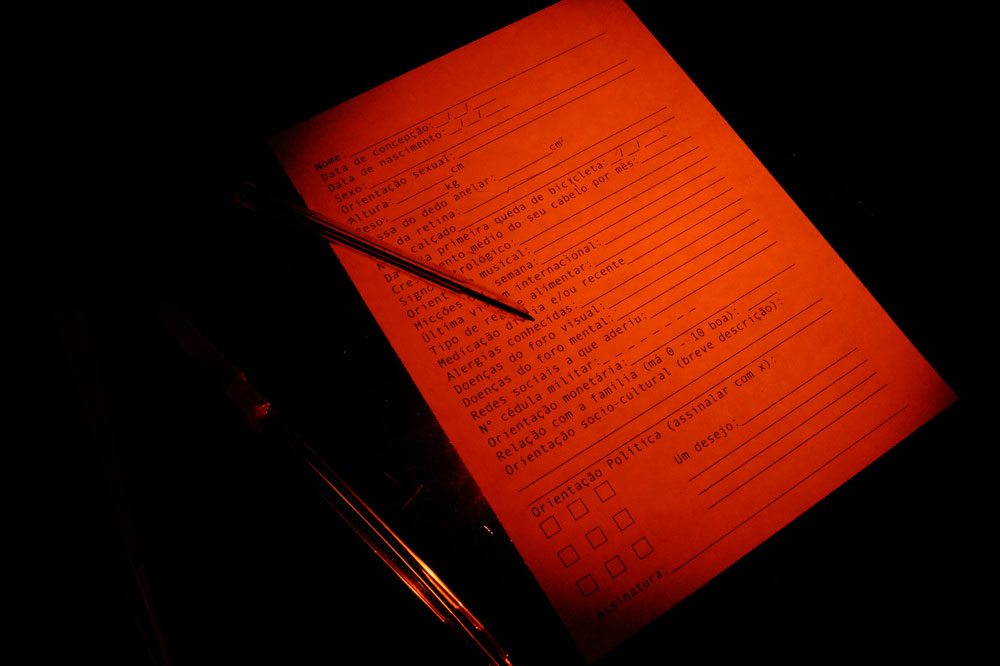 Nome:
Data de concepção: __/__/____
Data de nascimento: __/__/____
Sexo:
Orientação sexual:
Altura: cm
Peso: kg
do dedo anelar: cm²
da retina:
calçado:
primeira queda de bicicleta: __/__/
médio do seu cabelo por mês:
Signo
musical:
Micções semana:
Última internacional:
Tipo de alimentar:
Medicação e/ou recente
Alergias conhecidas:
Doenças do foro visual:
Doenças do foro mental:
Redes sociais a que aderiu:
Nº cédula militar:
Orientação monetária:
Relação com a família (má 0 - 10 boa):
Orientação socio-cultural (breve descrição):
Orientação Política (assinalar com x):
Um desejo:
Assinatura: